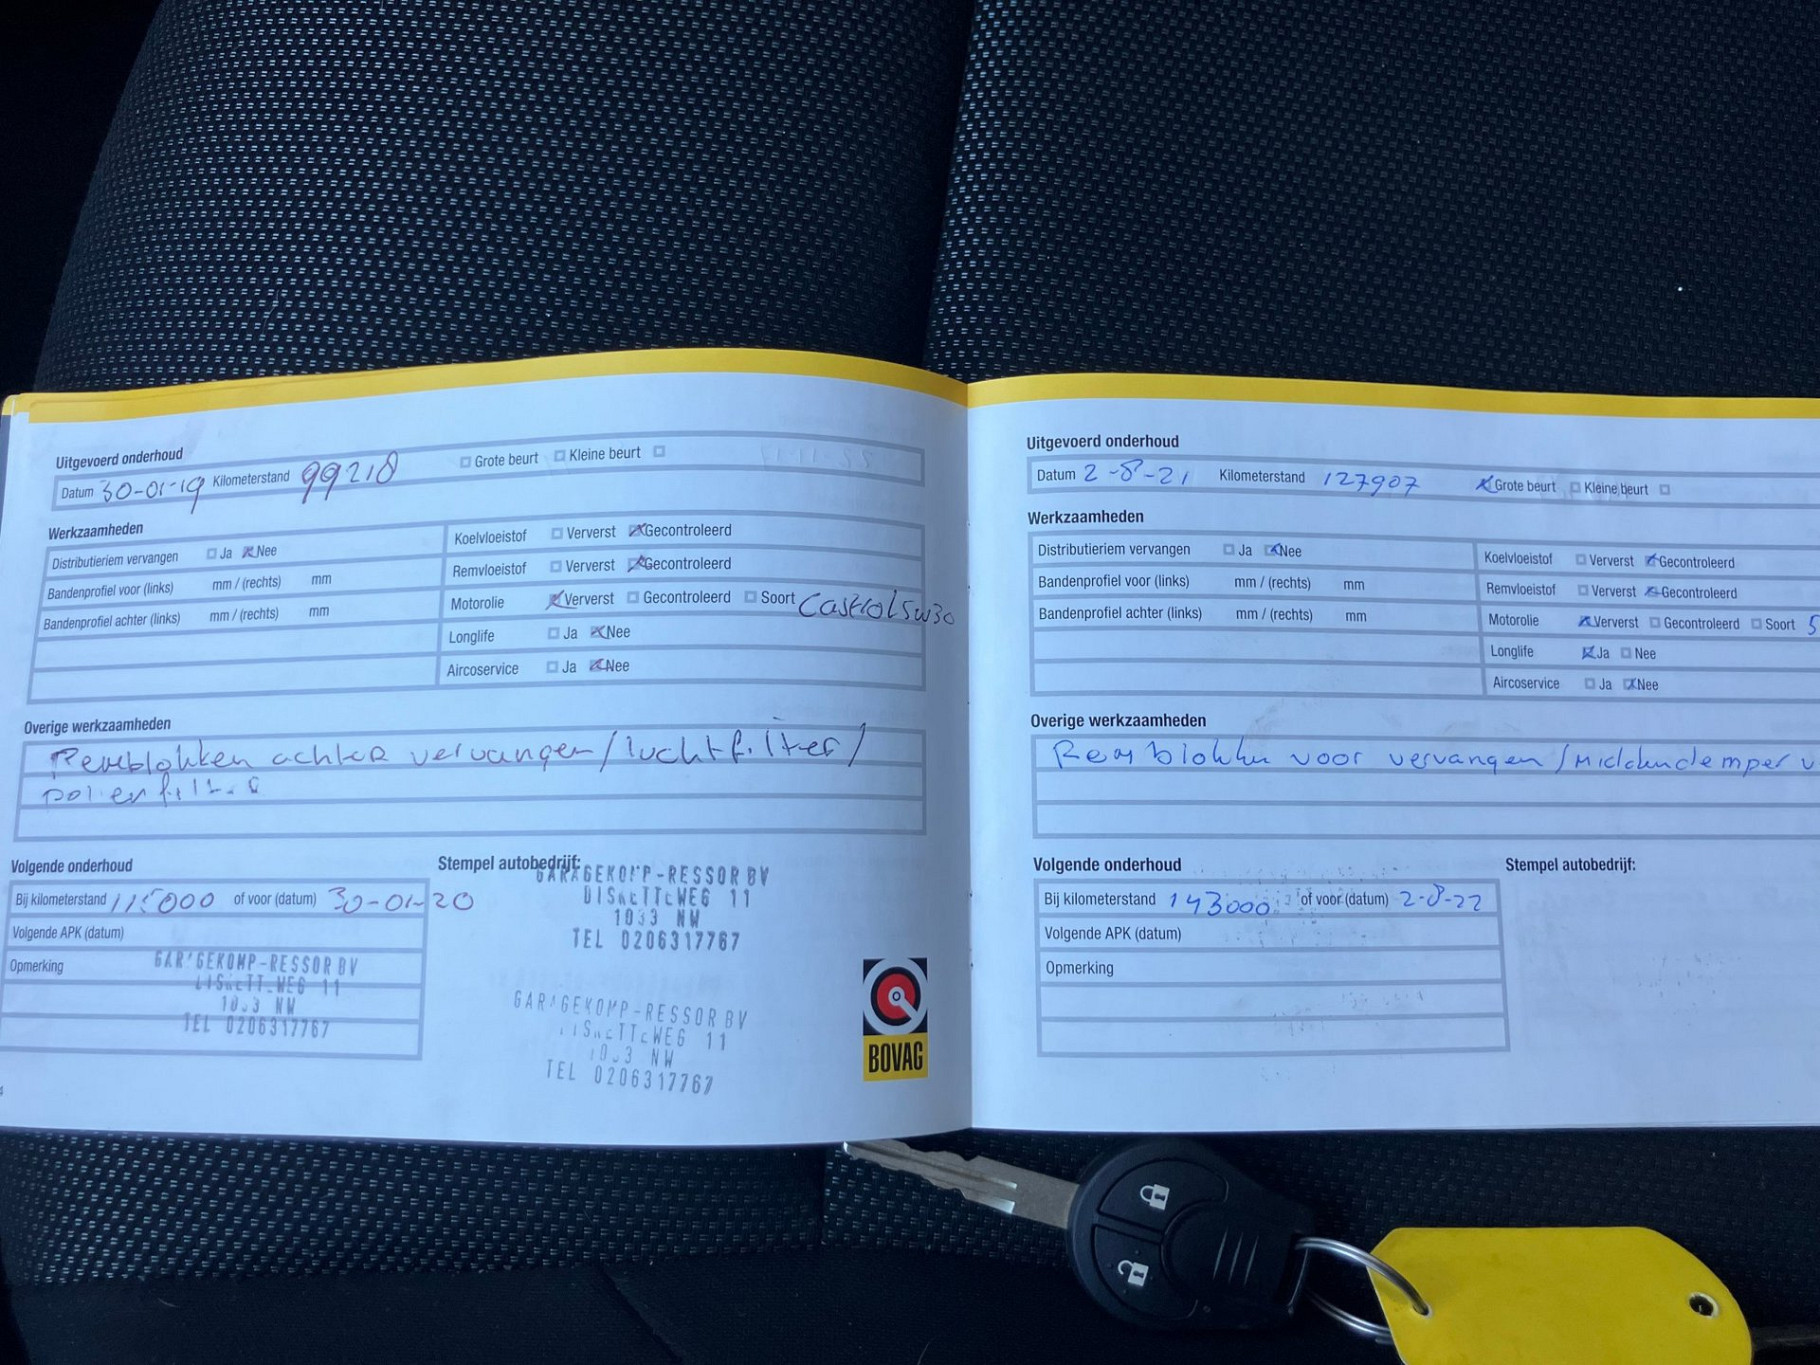 Uitgevoerd onderhoud
Datum 30-01-19 Kilometerstand 99218 Grote beurt Kleine beurt
Werkzaamheden
Distributieriem vervangen Ja Nee
Bandenprofiel voor (links) mm / (rechts) mm
Bandenprofiel achter (links) mm / (rechts) mm
Koelvloeistof Ververst Gecontroleerd
Remvloeistof Ververst Gecontroleerd
Motorolie Ververst Gecontroleerd Soort Castrol 5w30
Longlife Ja Nee
Aircoservice Ja Nee
Overige werkzaamheden
Remblokken achter vervangen/luchtfilter/
pollenfilter
Volgende onderhoud
Bij kilometerstand 115000 of voor (datum) 30-01-20
Volgende APK (datum)
Opmerking
GARAGEKOMP-RESSOR BV
1033 NW
TEL 0206317767
Stempel autobedrijf:
GARAGEKOMP-RESSOR BV
1033 NW
TEL 0206317767
GARAGEKOMP-RESSOR BV
1033 NW
TEL 0206317767
BOVAG
Uitgevoerd onderhoud
Datum 2-8-21 Kilometerstand 127907 Grote beurt Kleine beurt
Werkzaamheden
Distributieriem vervangen Ja Nee
Bandenprofiel voor (links) mm / (rechts) mm
Bandenprofiel achter (links) mm / (rechts) mm
Koelvloeistof Ververst Gecontroleerd
Remvloeistof Ververst Gecontroleerd
Motorolie Ververst Gecontroleerd Soort 5
Longlife Ja Nee
Aircoservice Ja Nee
Overige werkzaamheden
Remblokken voor vervangen/Middendemper v
Volgende onderhoud
Bij kilometerstand 143000 of voor (datum) 2-8-22
Volgende APK (datum)
Opmerking
Stempel autobedrijf: